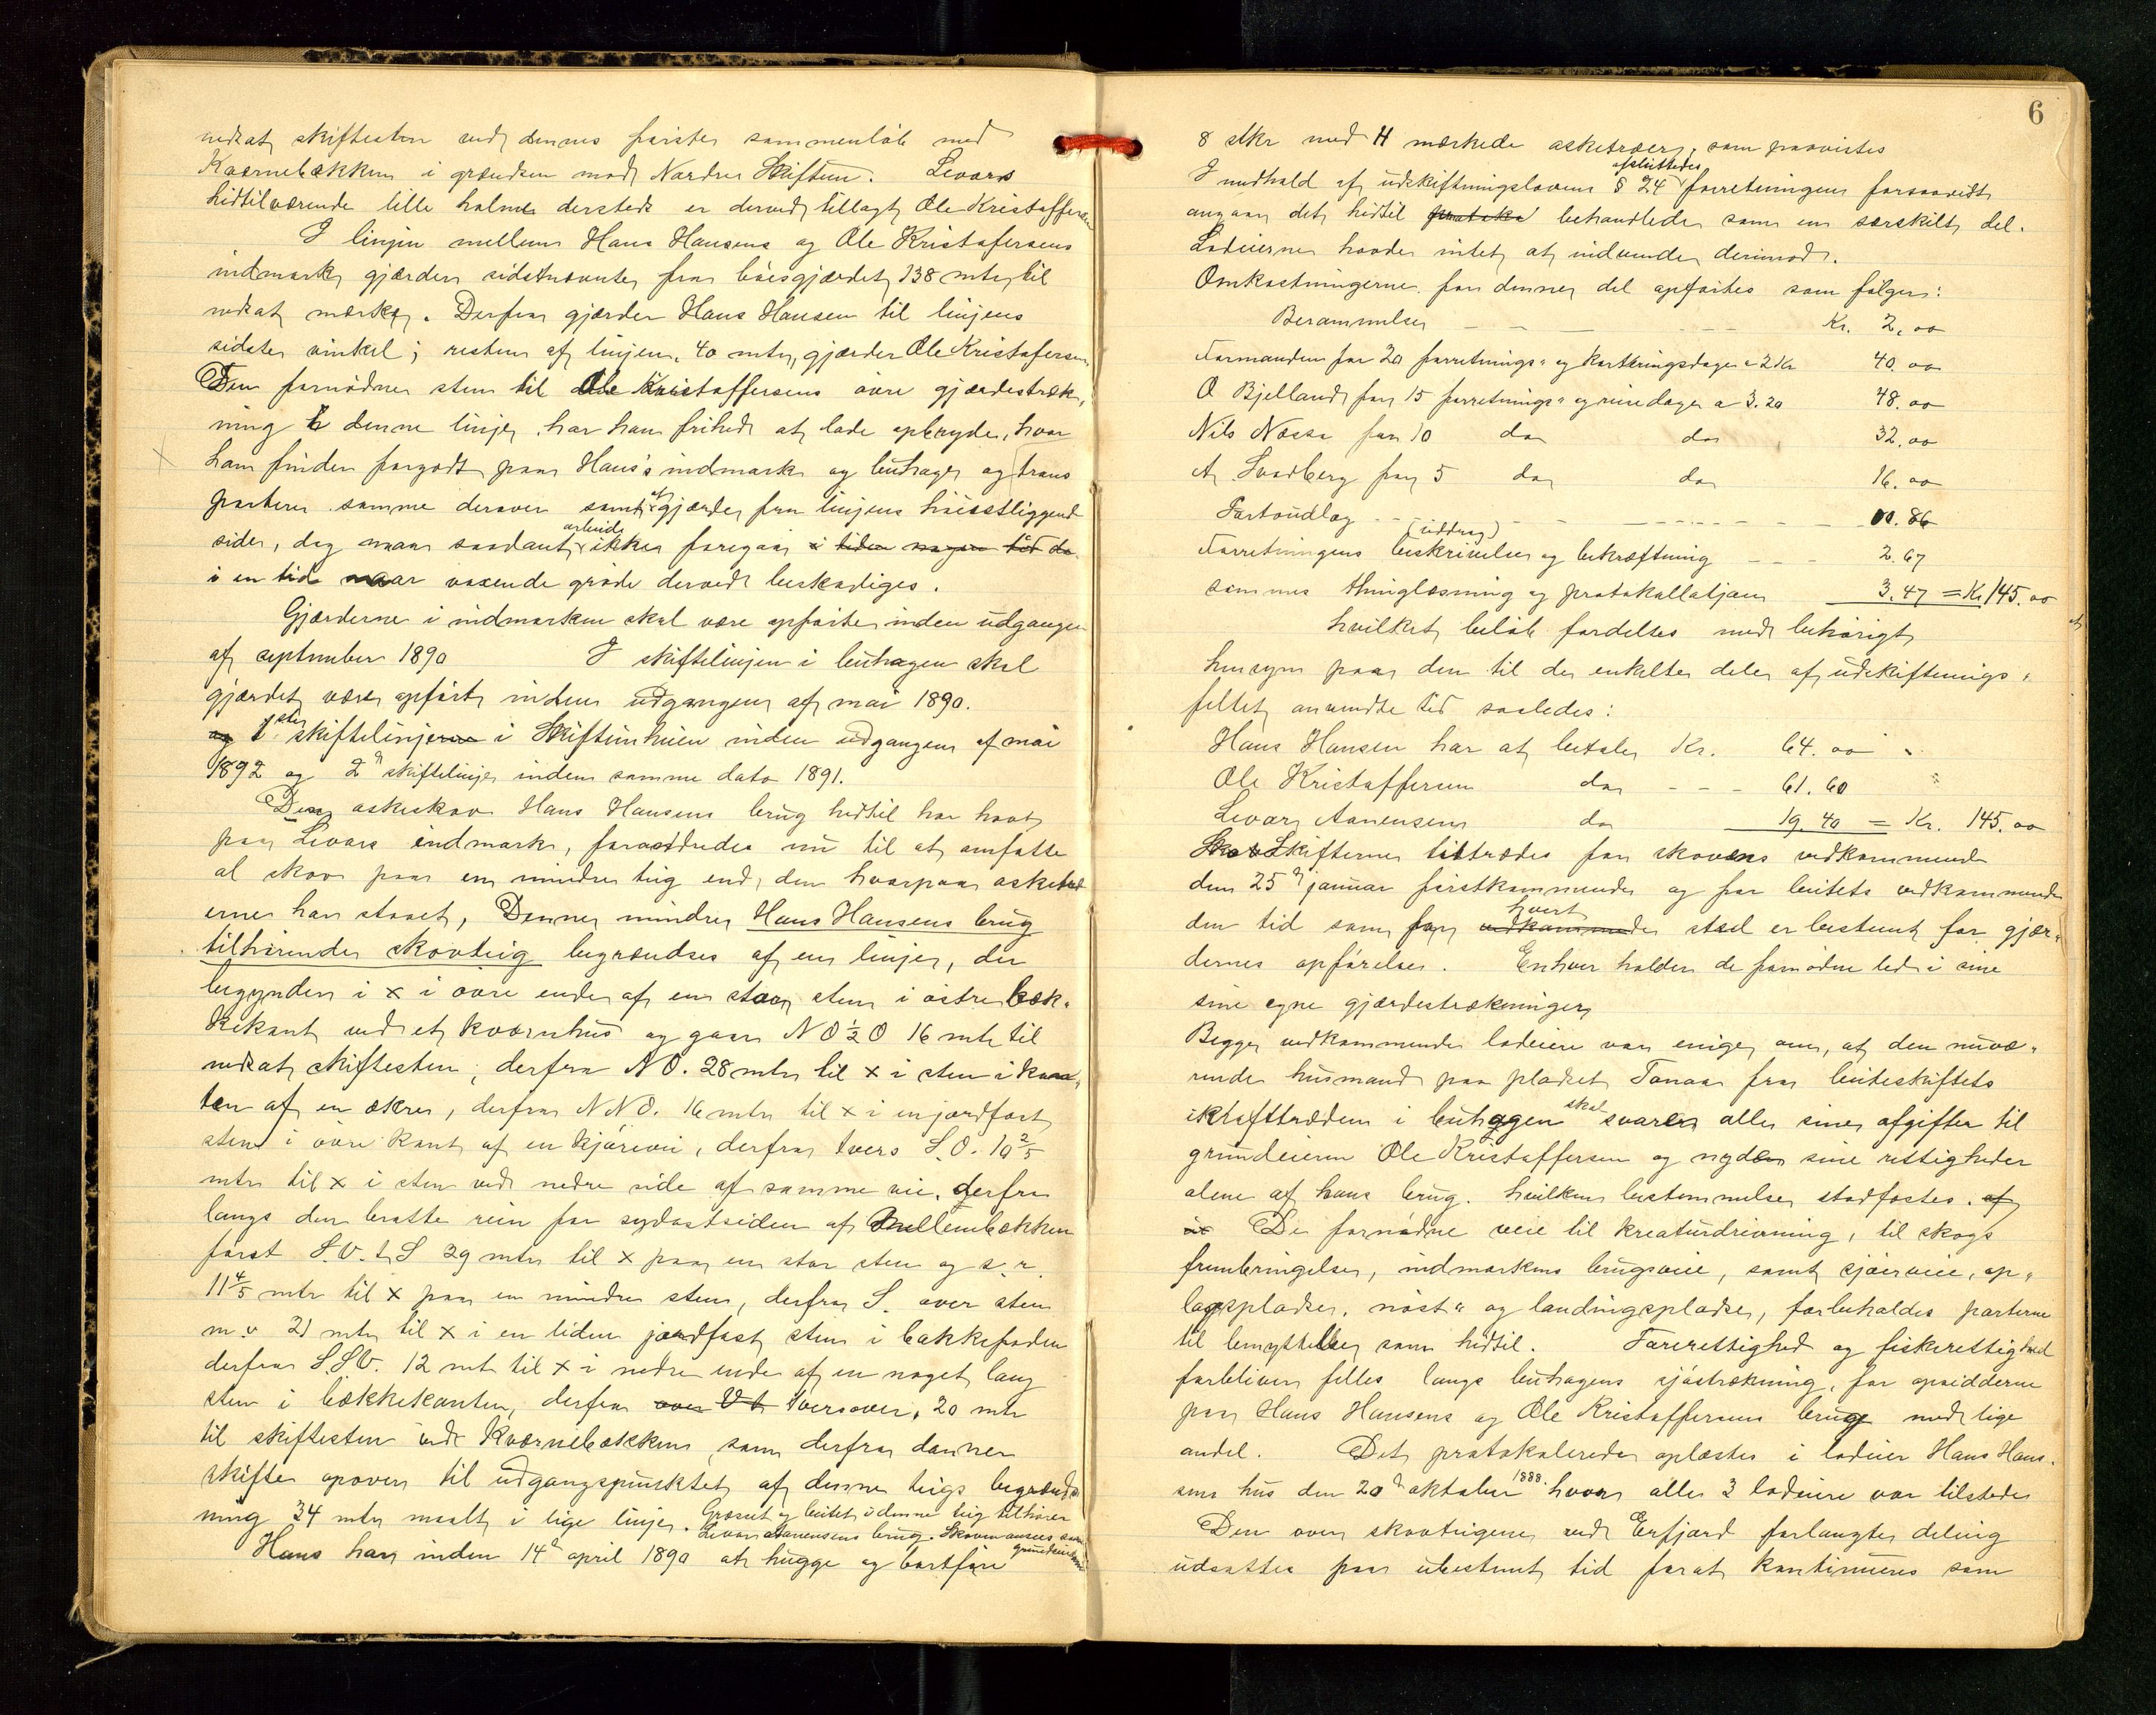 nedsat skiftesten ved dennes første sammenløb med
Kværnebækken i grændsen mod Nordre Skiftun. Sivars
hidtilværende lille holme dersteds er derved tillagt Ole Kristoffersen
I linjen mellem Hans Hansens og Ole Kristofersens
indmark gjærder sidstnævnte fra bøesgjærdet 138 mtr til
nedsat mærke. Derfra gjærder Hans Hansen til linjens
sidste vinkel; resten af linjen, 40 mtr, gjærder Ole Kristofersen
Den fornødne sten til Ole Kristoffersens øvre gjærdestræk-
ning i denne linje har han frihed at lade opbryde, hvor
ham finder forgodt paa Hans's indmark og buhage og trans
portere samme derover samt at gjærde fra linjens høiestliggende
side, dog maa saadant arbeide ikke foregaa i tiden nogen tid da
i en tid naar voxende grøde derved beskadiges.
Gjærderne i indmarken skal være opførte inden udgangen
af september 1890 I skiftelinjen i buhagen skal
gjærdet være opført inden udgangen af mai 1890.
og 1ste skiftelinjerne i Skiftunheien inden udgangen af mai
1892 og 2d skiftelinje inden samme dato 1891.
Den askeskov Hans Hansens brug hidtil har havt
paa Sivars indmark, forandredes nu til at omfatte
al skov paa en mindre teig end den hvorpaa asketræ
erne har staaet, Denne mindre Hans Hansens brug
tilhørende skovteig begrændses af en linje, der
begynder i x i øvre ende af en stor sten i østre bæk-
kekant ved et kværnhus og gaar NO ½ O 16 mtr til
nedsat skiftesten; derfra NO. 28 mtr til x i sten i kan-
ten af en økre, derfra NNO. 16 mtr til x i en jordfast
sten i øvre kant af en kjørevei, derfra tvers S.O. 10 2/5
mtr til x i sten ved nedre side af samme vei, derfra
langs den bratte rein for sydostsiden af Mellembækken
først S.V. t. S 29 mtr til x paa en stor sten og s. r.
11 4/5 mtr til x paa en mindre sten, derfra S. over sten
m. v 21 mtr til x i en liden jordfast sten i bakkefoden
derfra S.S.V. 12 mtr til x i nedre ende af en noget lang
sten i bækkekanten, derfra over V t. tversover, 20 mtr
til skiftesten ved Kværnebækken, som derfra danner
skifte opover til udgangspunktet af denne teigs begrænds
ning 34 mtr maalt i lige linje. Græsset og beitet i denne teig tilhører
Sivar Aanensens brug. Skoven ansees som
grundeiendom
Hans har inden 14d april 1890 at hugge og bortføre
6
8 stkr med H mærkede asketræer, som paavistes
I medhold af udskiftningslovens § 24 afsluttedes forretningen forsaavidt
angaar det hidtil protoko behandlede som en særskilt del.
Lodeierne havde intet at indvende derimod.
Omkostningerne for denne del opførtes som følger:
Berammelse Kr. 2,00
Formanden for 20 forretnings- og karteringsdage a 2 Kr 40.00
O Bjelland for 15 forretnings- og reisedage a 3.20 48.00
Nils Næssa for 10 do do 32.00
A Svadberg for 5 do do 16.00
Portoudlæg 00.86
Forretningens beskrivelse (uddrag) og bekræftning 2.67
sammes thinglæsning og protokollatjon 3.47 = Kr 145.00
hvilket beløb fordeltes med behørigt
hensyn paa den til de enkelte dele af udskiftnings-
feltet anvendte tid saaledes:
Hans Hansen har at betale Kr. 64.00
Ole Kristoffersen do 61.60
Sivar Aanensen do 19.40 = Kr. 145.00
Skov Skifterne tiltrædes for skovens vedkommende
den 25d januar førstkommende og for beitets vedkommende
den tid som for vedkommende hvert sted er bestemt for gjær-
dernes opførelse. Enhver holder de fornødne led i sine
sine egne gjærdestrækninger
Begge vedkommende lodeiere var enige om, at den nuvæ-
rende husmand paa pladset Tonaa fra beiteskiftets
ikrafttræden i buhagen skal svare alle sine afgifter til
grundeieren Ole Kristoffersen og nyde sine rettigheder
alene af hans brug. hvilken bestemmelse stadfæstes. af
De fornødne veie til kreaturdrivning, til skogs
frembringelse, indmarkens brugsveie, samt sjøerveie, op-
lagspladse, nøst- og landingspladse, forbeholdes parterne
til benyttelse som hidtil. Farerettighed og fiskerettighed
forbliver felles langs buhagens sjøstrækning, for opsidderne
paa Hans Hansens og Ole Kristoffersens brug med lige
andel. Det protokolerede oplæstes i lodeier Hans Han-
sens hus den 20d oktober 1888. hvor alle 3 lodeiere var tilstede
Den over skovteigene ved Erfjord forlangte deling
udsattes paa ubestemt tid forat kontinueres som